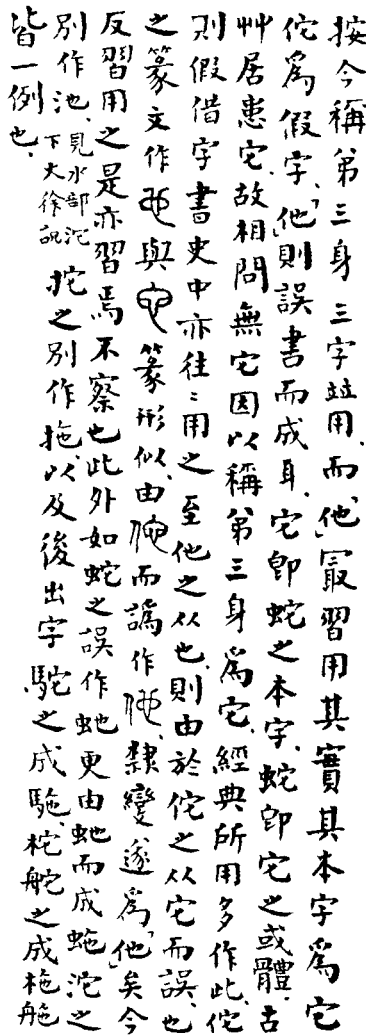 按今稱弟三身三字竝用、而「他」冣習用其實其本字爲它
佗爲假字、「他」則誤書而成耳、它卽蛇之本字、蛇卽它之或體、古
艸居患它、故相問無它因以稱弟三身爲它、經典所用多作此、佗
則假借字書史中亦往〻用之至他之从也、則由於佗之从它而誤、也
之篆文作也與它篆形似、由佗而譌作他、隸變遂爲「他」矣今
反習用之是亦習焉不察也此外如蛇之誤作虵更由虵而成䖤沱之
別作池、見水部沱下大徐說拕之別作拖、以及後出字駝之成駞、柁舵之成柂䑨
皆一例也、